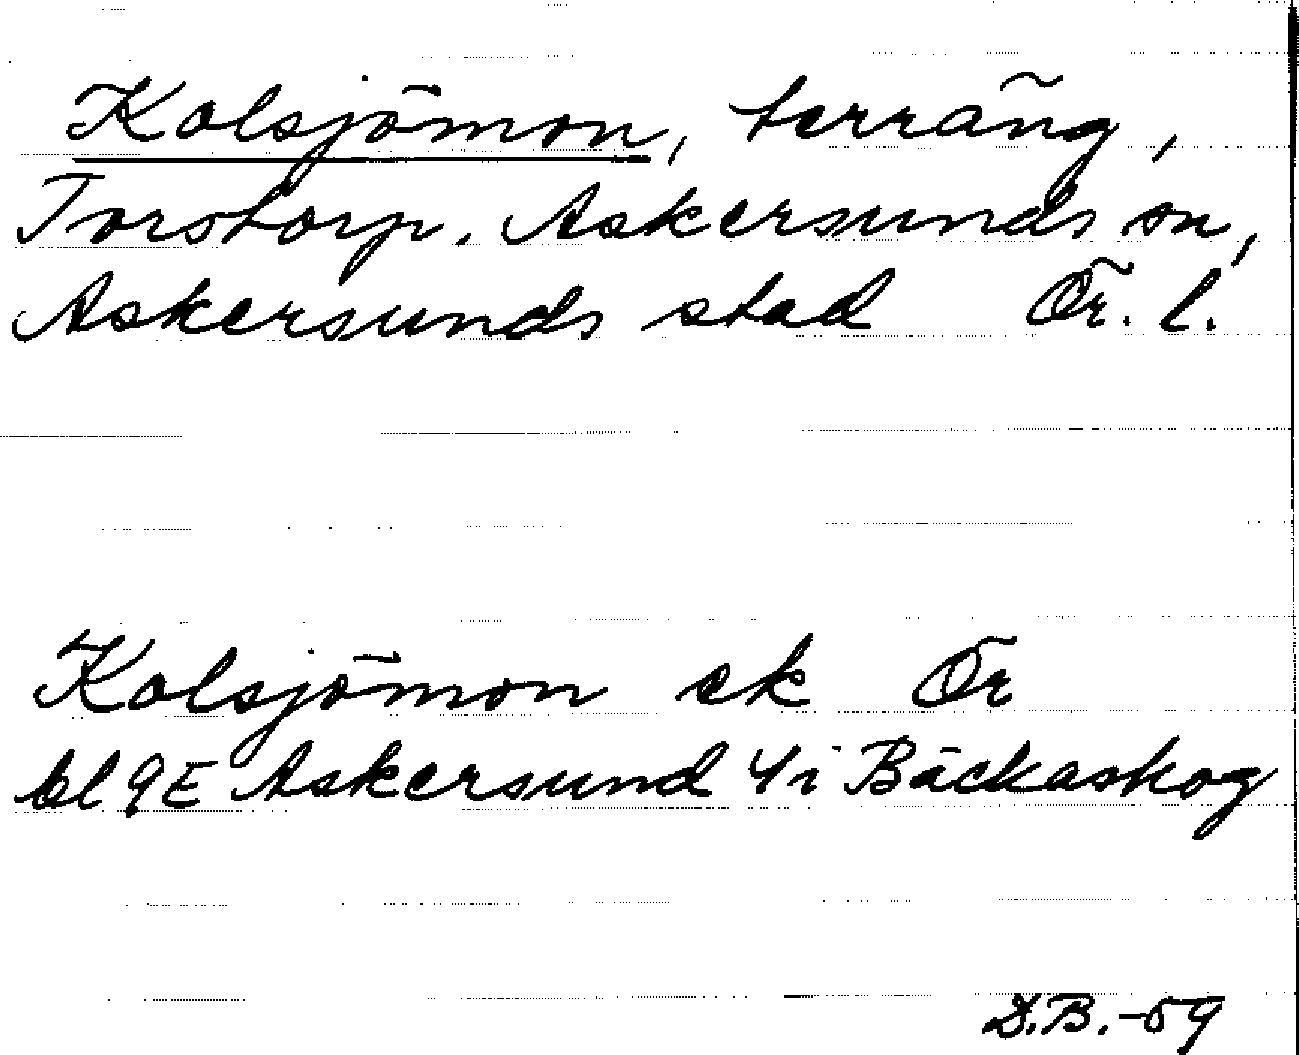 Kolsjömon, terräng,
Torstorp. Askersunds sn,
Askersunds stad Ör. l.
Kolsjömon ek Ör
bl 9E Askersund 4i Bäckaskog
D.B.-59